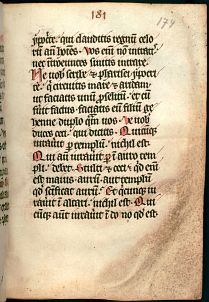 181
174
ypocrite. qui clauditis regnum celo
rum ante homines. Vos enim non intratis
nec introeuntes sinitis intrare.
Ve vobis scribe et pharisei ypocri
te. qui circuitis mare et aridam.
ut faciatis unum proselitum. et cum
fuit factus. facitis eum filium ge
henne duplo quam vos. Ve vobis
duces ceci. qui dicitis. Quicumque
iuraverit per templum. nichil est.
Qui autem iuraverit in auro tem
pli. debet. Stulti et ceci. quid enim
est maius. aurum. aut templum
quod sanctificat aurum. Et quicumque iu
raverit in altari. nichil est. Qui
cumque autem iuraverit in dono quod est